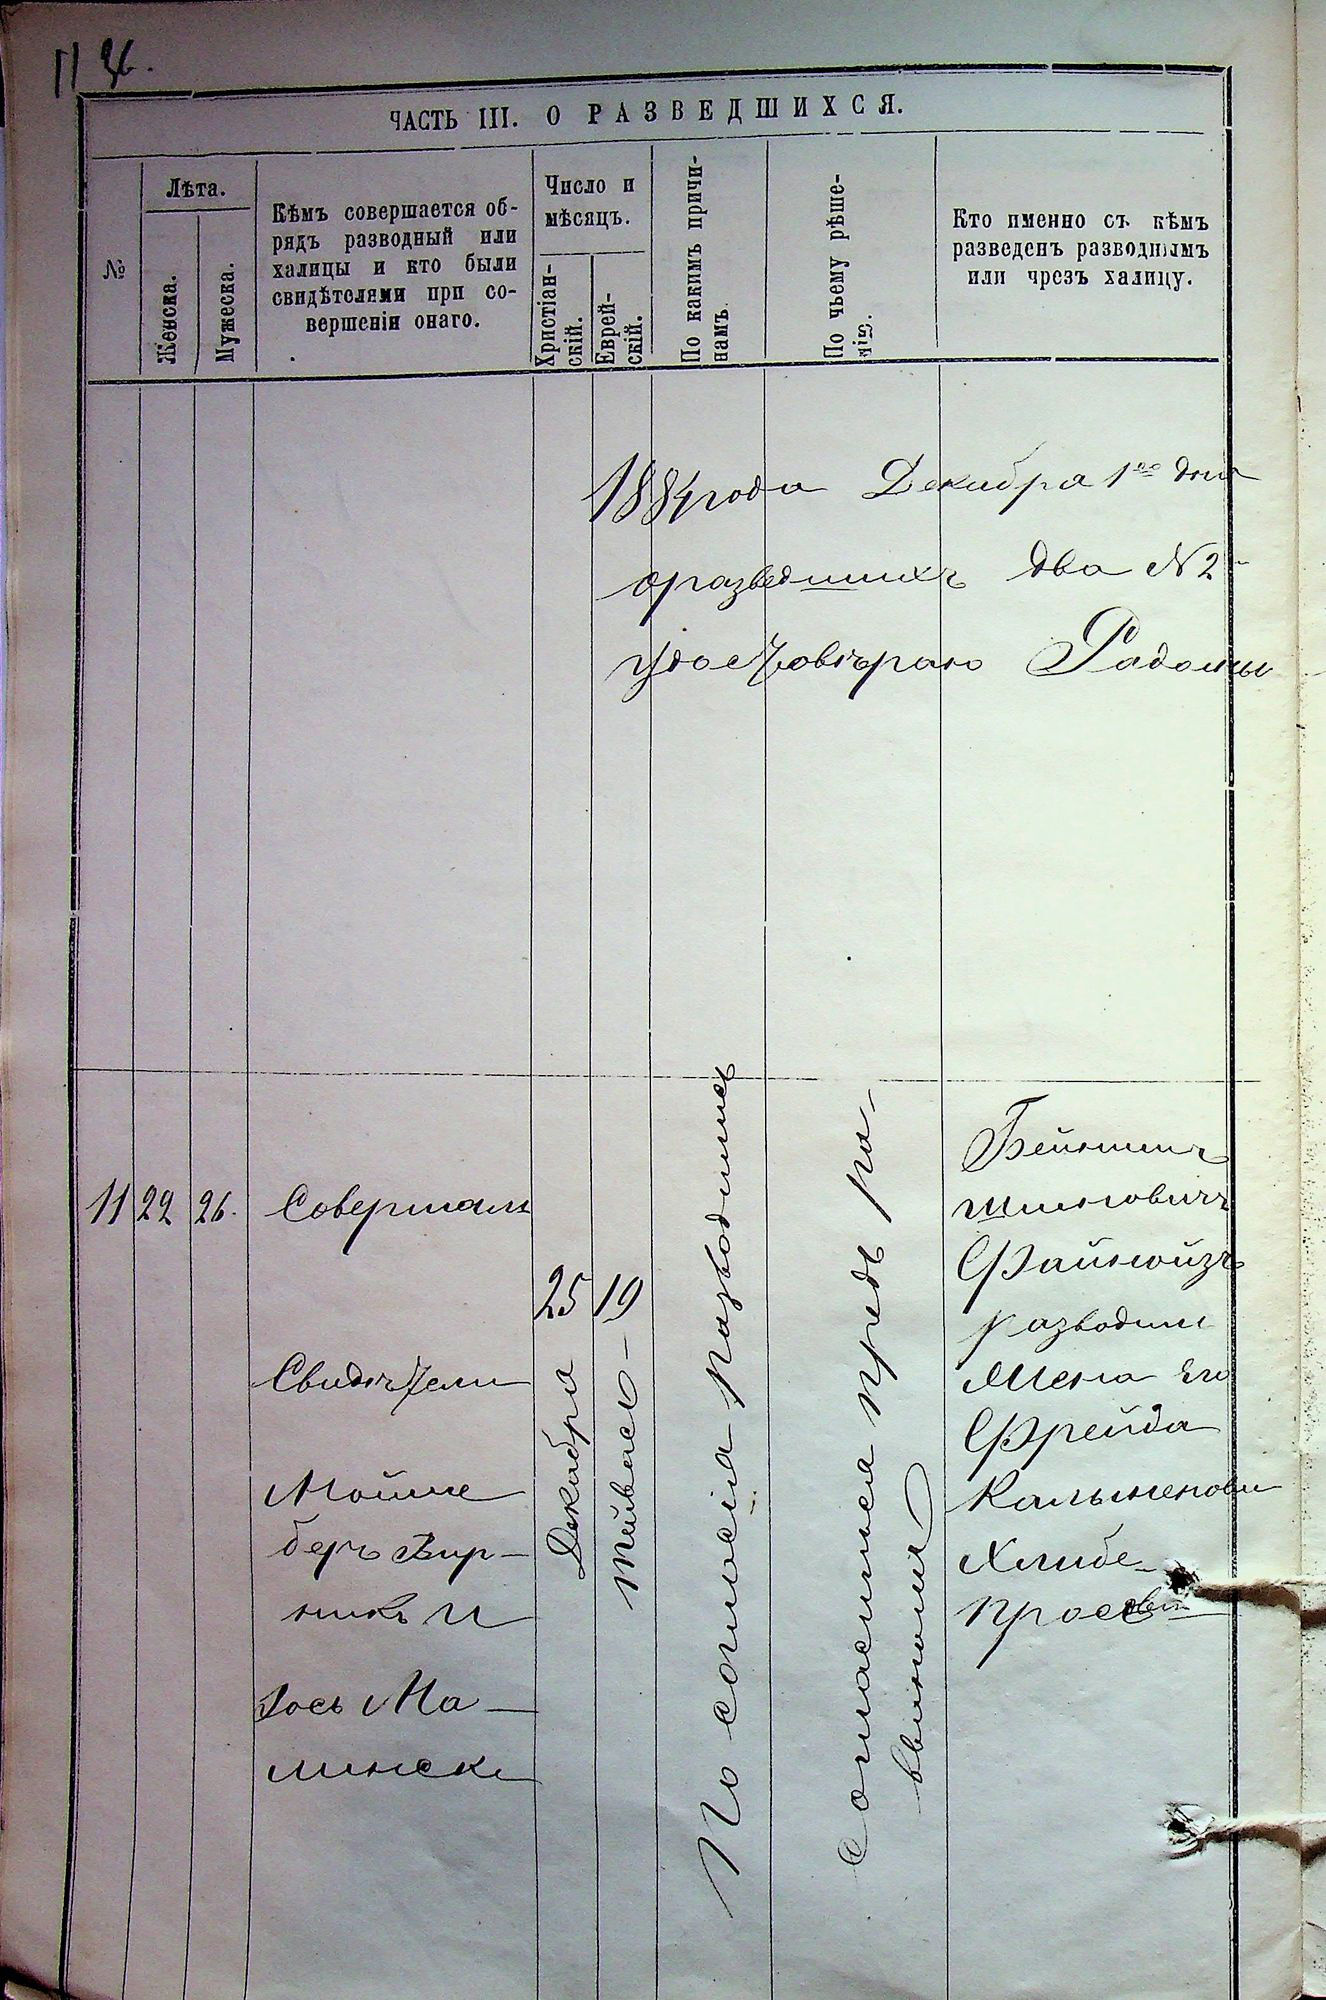 11 36.
ЧАСТЬ III. О РАЗВЕДШИХСЯ.
№
Лѣта.
Женска.
Мужеска.
Кѣмъ совершается об-
рядъ разводный или
халицы и кто были
свидѣтелями при со-
вершеніи онаго.
Число и
мѣсяцъ.
Христіан-
скій.
Еврей-
скій.
По какимъ причи-
намъ.
По чьему рѣше-
нію.
Кто именно съ кѣмъ
разведенъ разводнымъ
или чрезъ халицу.
1884 года Декабра 1го дня
о разведшихъ два N 2
удостовѣраю Радомы
11
22
26.
Совершалъ
Свидѣтели
Мойше
беръ Вир-
никъ и
Іось Ма-
лински
25
Декабра
19
Тейвась
По согласіа разводились
согласилися предъ ра-
ввиномъ
Файнгойзъ
разводил
Жена его
Фрейда
Хлибе-
просови